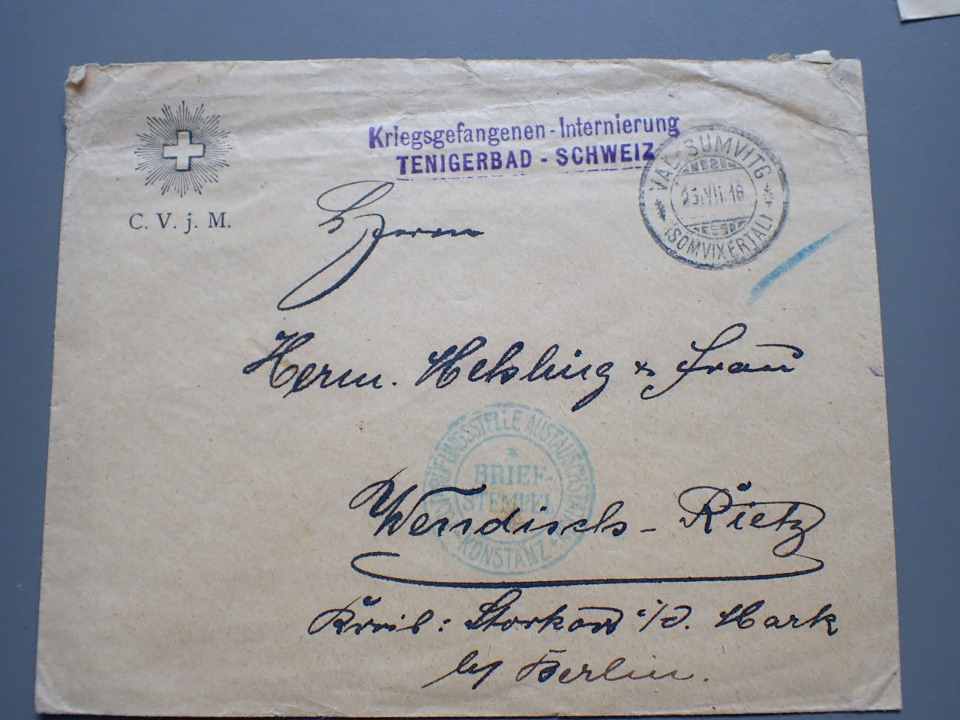 Kriegsgefangenen-Internierung
TENIGERBAD - SCHWEIZ
C. V. j. M.
VAL SUMVITG
VII.18
(SOMVIXERTAL)
Herrn
Herm. Helsling & Frau
PRÜFUNGSSTELLE AUSTAUSCHSTATION
BRIEF-
STEMPEL
KONSTANZ
Wendisch-Rietz
Kreis: Storkow i/d. Mark
by Berlin.